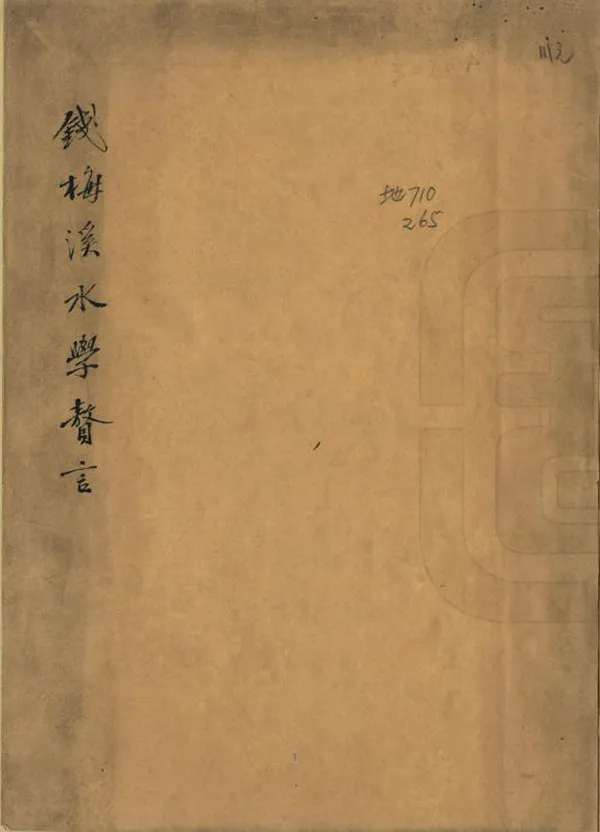 錢梅溪水學贅言
地710
265